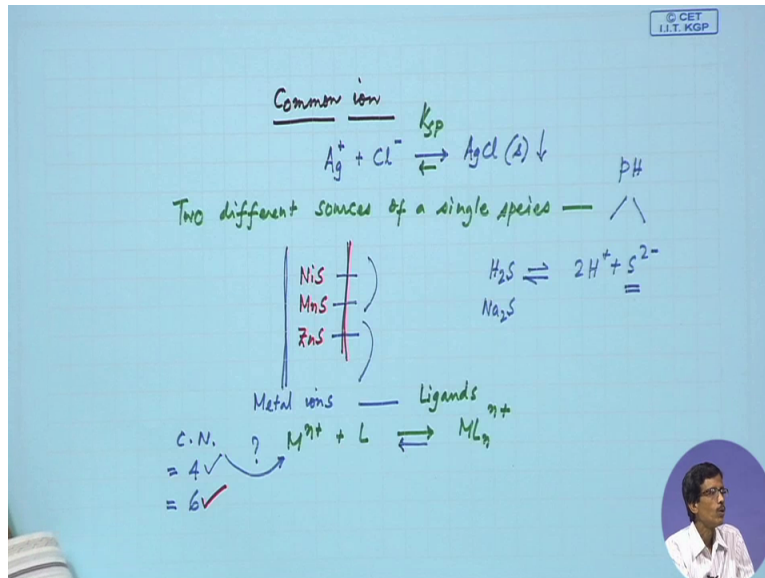 © CET
I.I.T. KGP
Common ion
Ksp
Ag⁺ + Cl⁻ ⇌ AgCl (s) ↓
pH
Two different sources of a single speies —
NiS
H₂S ⇌ 2H⁺ + S²⁻
MnS
Na₂S
ZnS
Metal ions — Ligands
C.N. ? Mⁿ⁺ + L ⇌ MLₙⁿ⁺
= 4 ✓
= 6 ✓